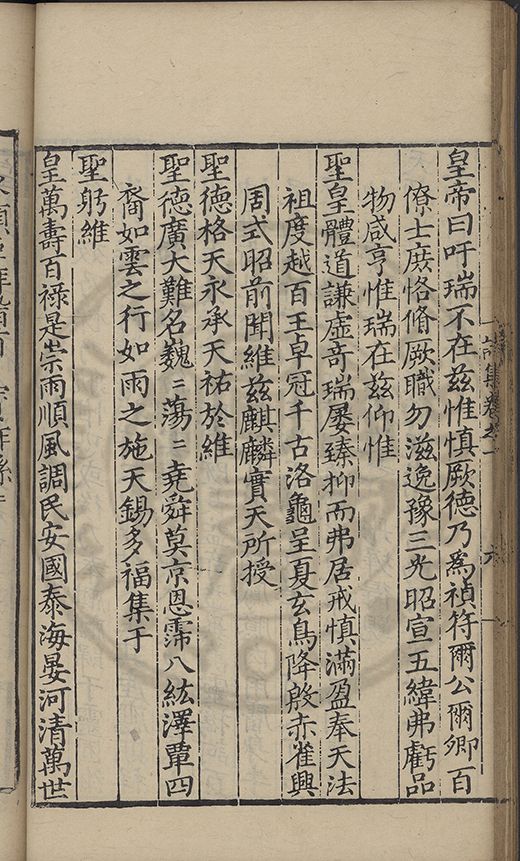 皇帝曰吁瑞不在兹惟慎厥德乃爲禎符爾公爾卿百
僚士庶恪脩厥職勿滋逸豫三光昭宣五緯弗虧品
物咸亨惟瑞在兹仰惟
聖皇體道謙虚奇瑞屡臻抑而弗居戒慎滿盈奉天法
祖度越百王卓冠千古洛龜呈夏玄鳥降殷赤雀興
周式昭前聞維兹麒麟實天所授
聖德格天永承天祐於維
聖德廣大難名巍〻蕩〻堯舜莫京恩霈八紘澤覃四
裔如雲之行如雨之施天錫多福集于
聖躬維
皇萬壽百禄是崇雨順風調民安國泰海晏河清萬世
詩集卷之一
六